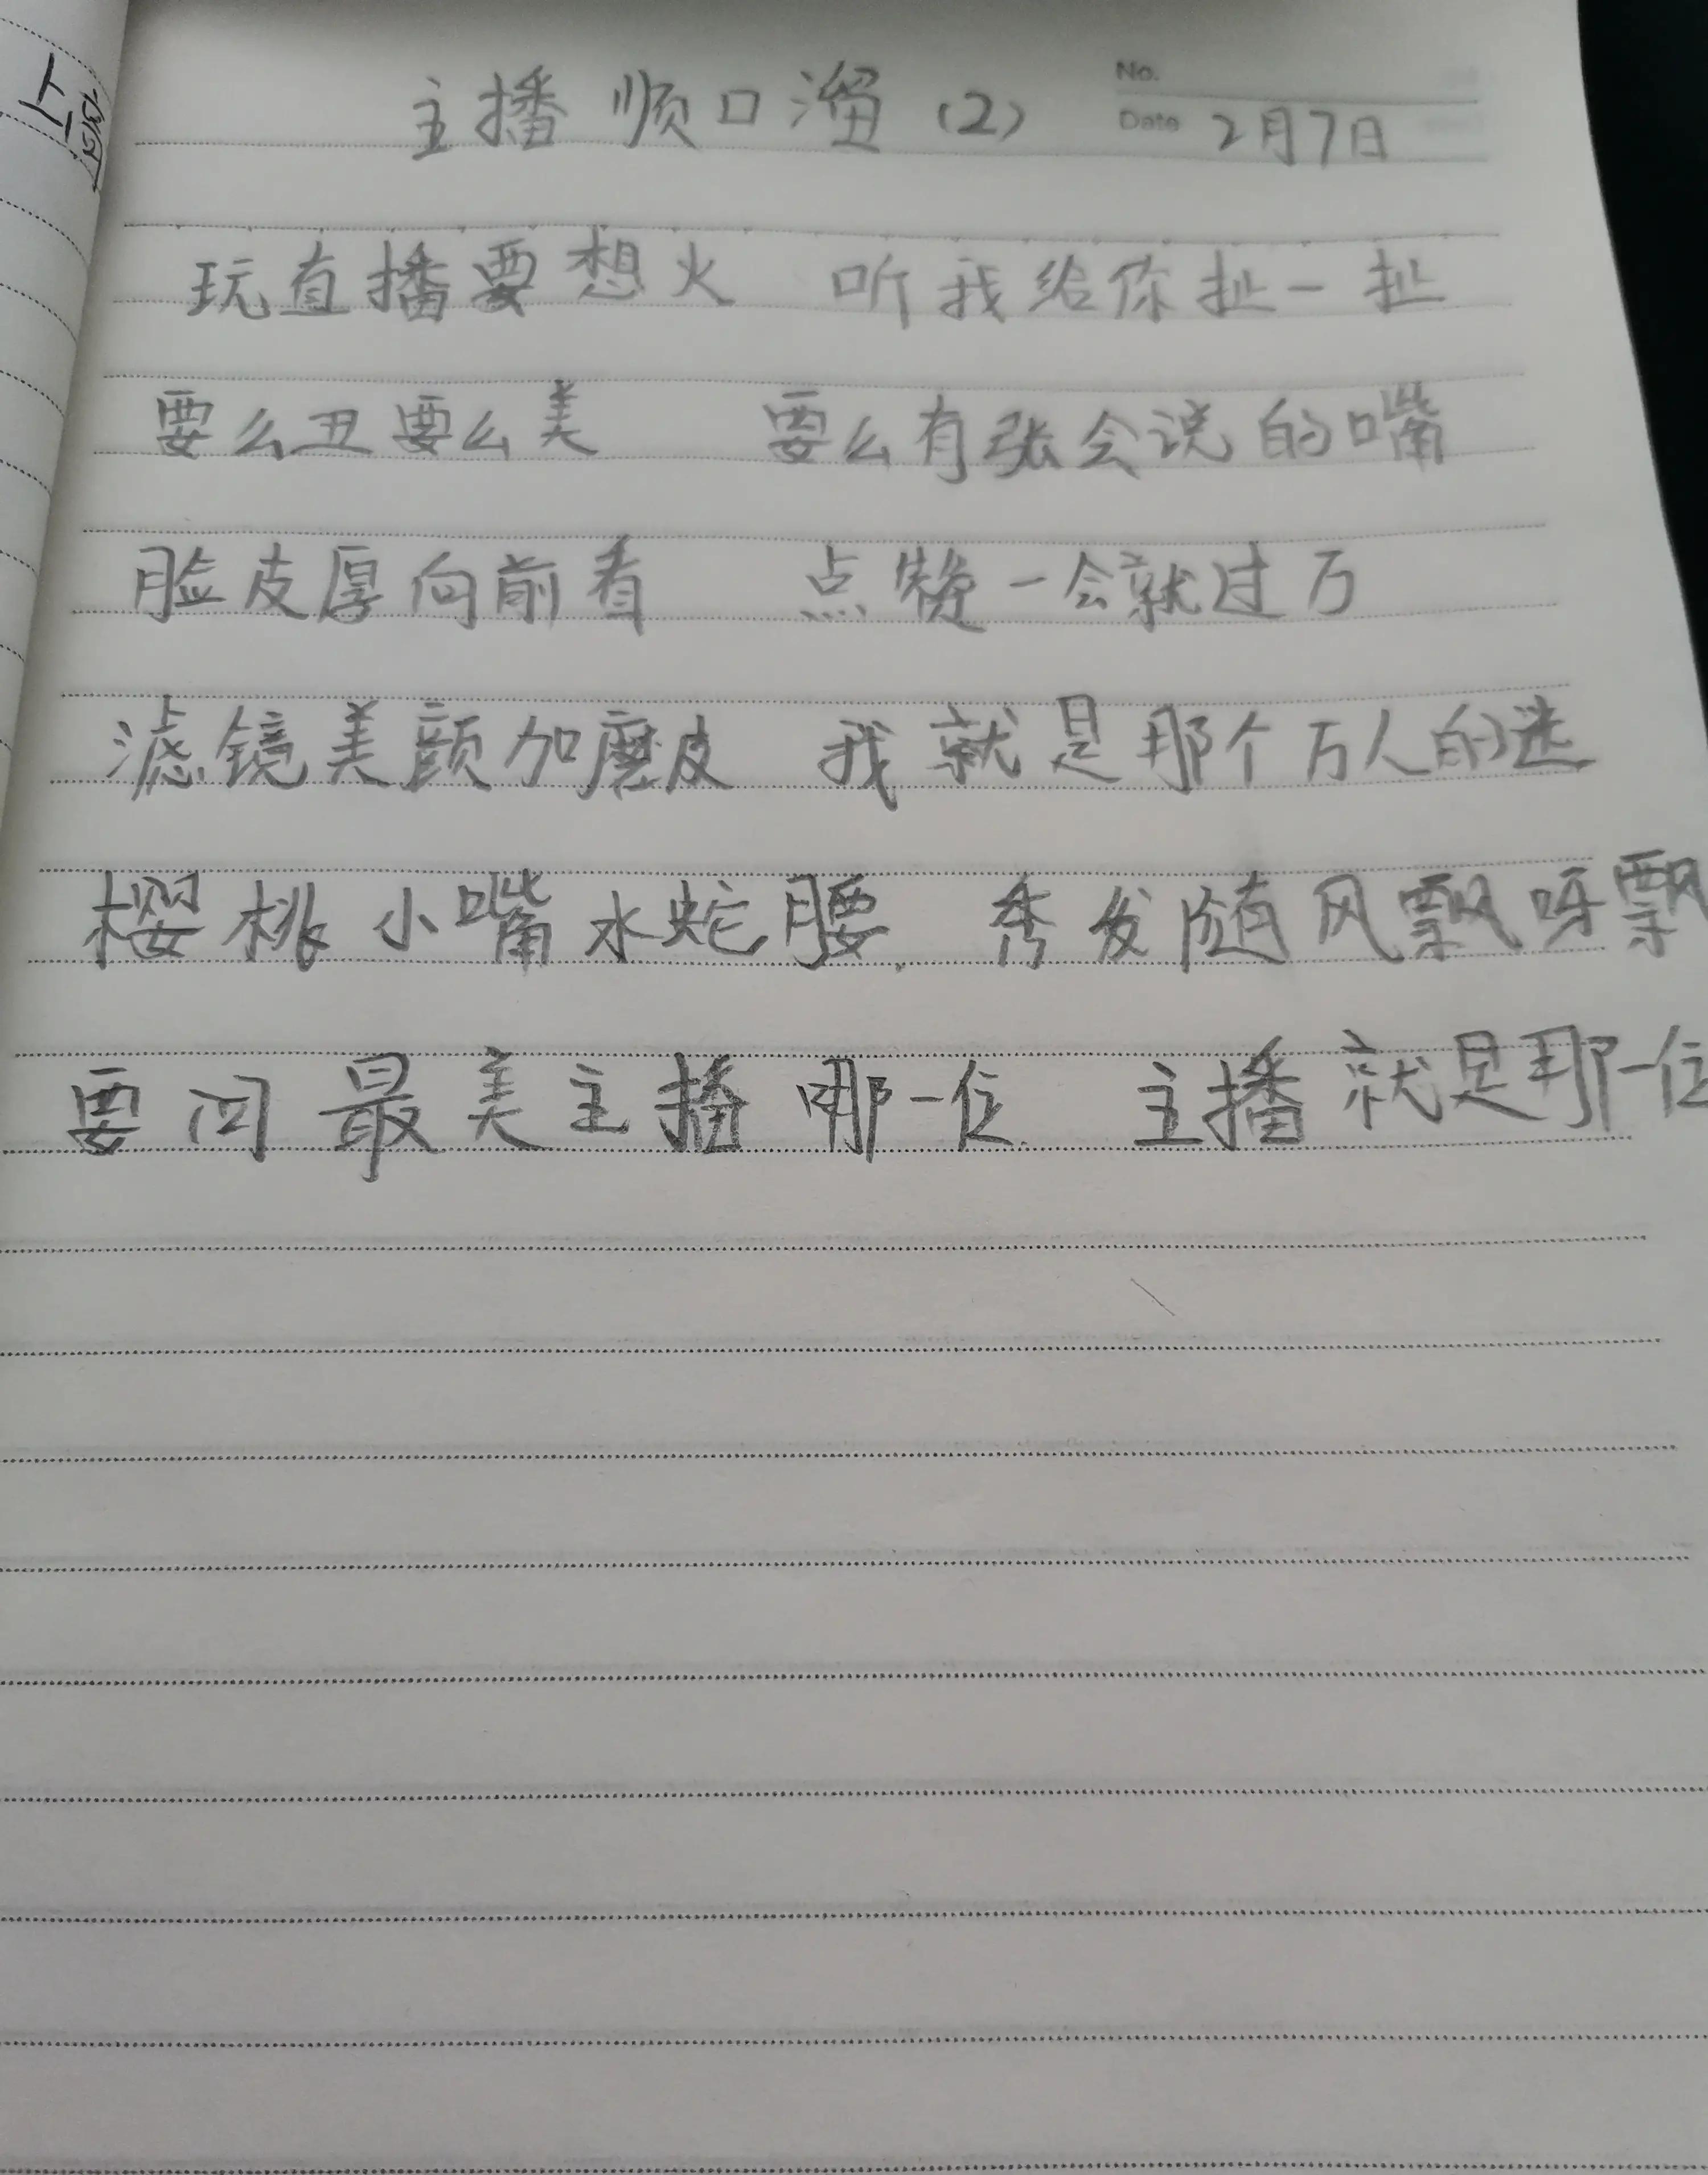 主播顺口溜(2)
No.
Date 2月7日
玩直播要想火 听我给你扯一扯
要么丑要么美 要么有张会说的嘴
脸皮厚向前看 点赞一会就过万
滤镜美颜加磨皮 我就是那个万人的迷
樱桃小嘴水蛇腰. 秀发随风飘呀飘
要问最美主播哪一位. 主播就是那一位